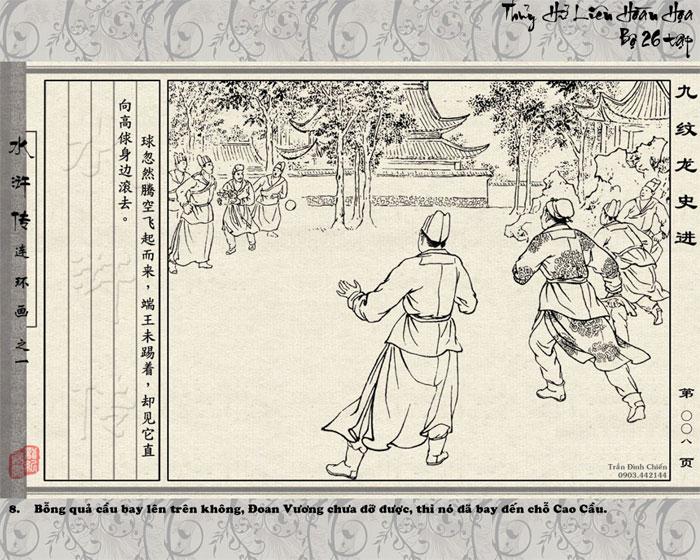 Thủy Hử Liên Hoàn Họa
Bộ 26 tập
水浒传连环画之一
九纹龙史进
球忽然腾空飞起而来，端王未踢着，却见它直
向高俅身边滚去。
水浒传
第〇〇八页
Trần Đình Chiến
0903.442144
8. Bỗng quả cầu bay lên trên không, Đoan Vương chưa đỡ được, thì nó đã bay đến chỗ Cao Cầu.